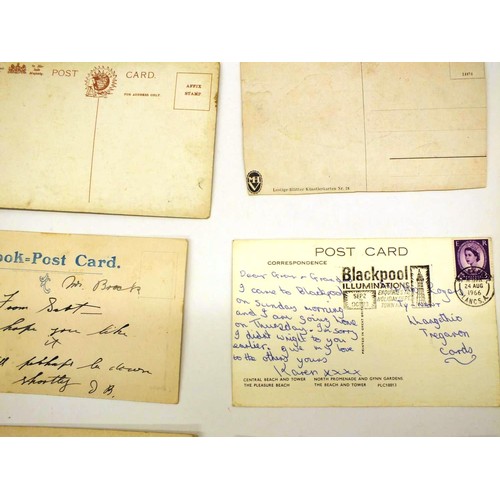 POST CARD.
FOR ADDRESS ONLY.
AFFIX
STAMP
Lustige Blätter Künstlerkarten Nr. 
ook=Post Card.
Mr.
From
hope you like
it
perhaps be down
shortly D B.
POST CARD
CORRESPONDENCE
Dear Gran + Grandad
I came to Blackpool
on Sunday morning
and I am going home
on Thursday. I'm sorry
I didn't wright to you
earlier. give my love
to the others yours
Karen xxxx
Blackpool
ILLUMINATIONS
SEP 2
24 AUG
1966
LANCS.
Tregaron
Cards
CENTRAL BEACH AND TOWER NORTH PROMENADE AND GYNN GARDENS
THE PLEASURE BEACH THE BEACH AND TOWER PLC10013